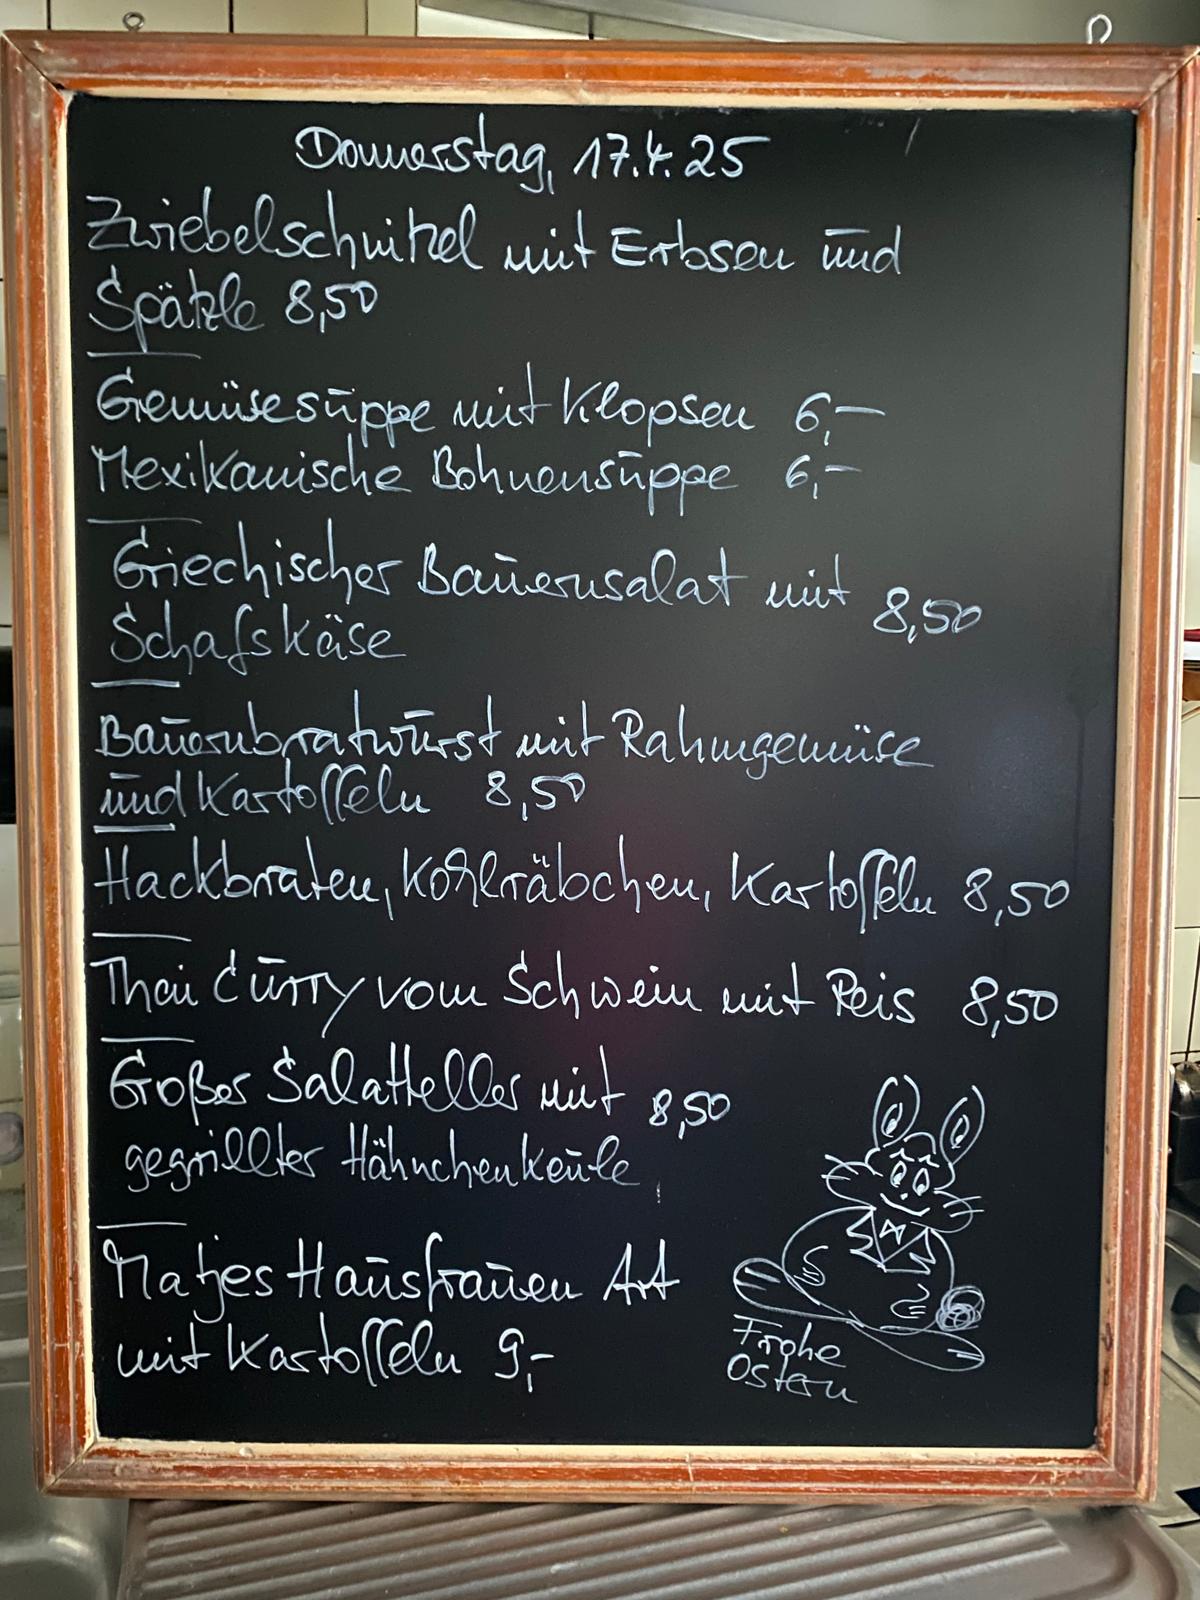 Donnerstag, 17.4.25
Zwiebelschnitzel mit Erbsen und
Spätzle 8,50
Gemüsesuppe mit Klopsen 6,-
Mexikanische Bohnensuppe 6,-
Griechischer Bauernsalat mit 8,50
Schafskäse
Bauernbratwurst mit Rahmgemüse
und Kartoffeln 8,50
Hackbraten, Kohlräbchen, Kartoffeln 8,50
Thai Curry vom Schwein mit Reis 8,50
Großer Salatteller mit 8,50
gegrillter Hähnchenkeule
Matjes Hausfrauen Art
mit Kartoffeln 9,-
Frohe
Ostern